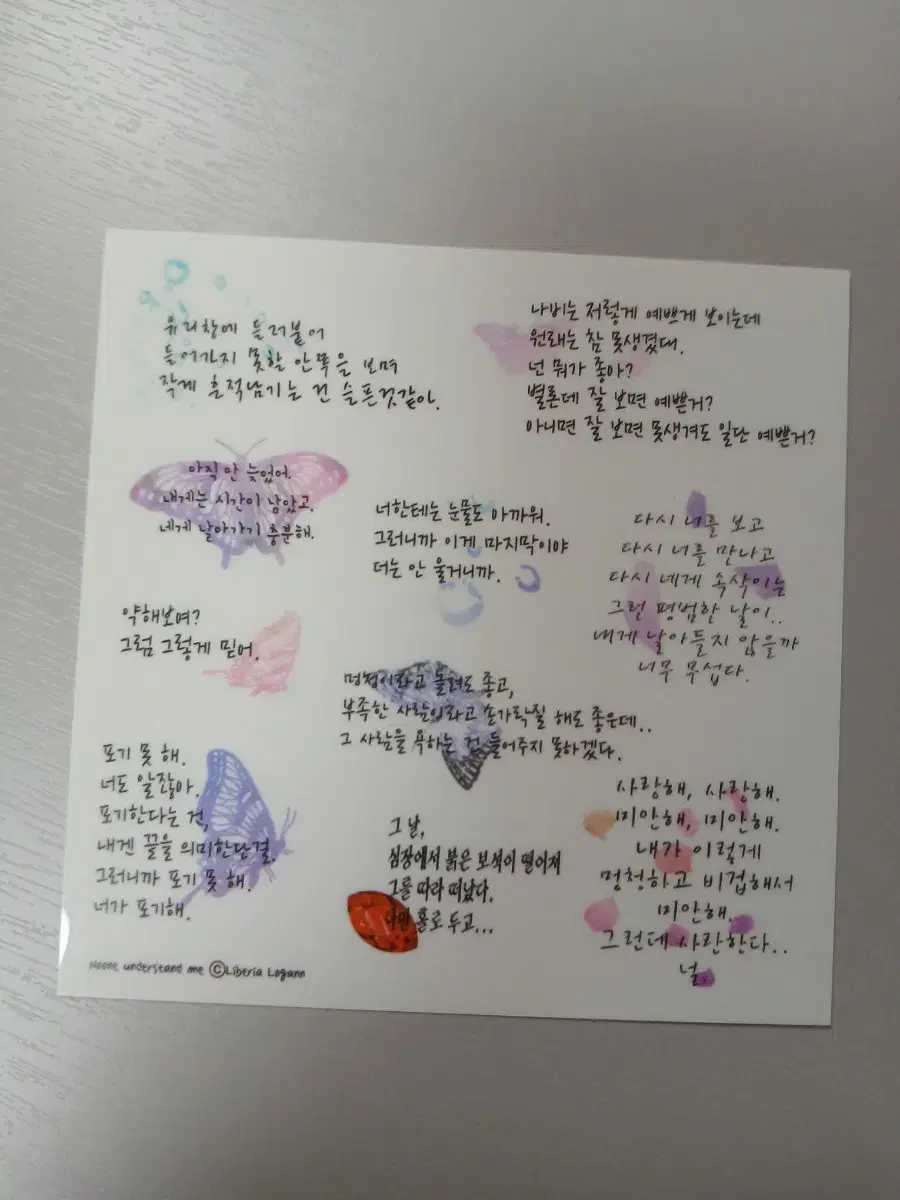 유리창에 들러붙어
들어가지 못할 안쪽을 보며
작게 흔적남기는 건 슬픈것같아.
나비는 저렇게 예쁘게 보이는데
원래는 참 못생겼대.
넌 뭐가 좋아?
별론데 잘 보면 예쁜거?
아니면 잘 보면 못생겨도 일단 예쁜거?
아직 안 늦었어.
내게는 시간이 남았고,
네게 날아가기 충분해.
너한테는 눈물도 아까워.
그러니까 이게 마지막이야
더는 안 울거니까.
다시 너를 보고
다시 너를 만나고
다시 네게 속삭이는
그런 평범한 날이..
내게 날아들지 않을까
너무 무섭다.
약해보여?
그럼 그렇게 믿어.
멍청이라고 놀려도 좋고,
부족한 사람이라고 손가락질 해도 좋은데..
그 사람을 욕하는 건 들어주지 못하겠다.
포기 못 해.
너도 알잖아.
포기한다는 건,
내겐 끝을 의미한단걸.
그러니까 포기 못 해.
너가 포기해.
그 날,
심장에서 붉은 보석이 떨어져
그를 따라 떠났다.
나만 홀로 두고...
사랑해, 사랑해.
미안해, 미안해.
내가 이렇게
멍청하고 비겁해서
미안해.
그런데 사랑한다..
널.
Noone understand me ©Liberia Logann